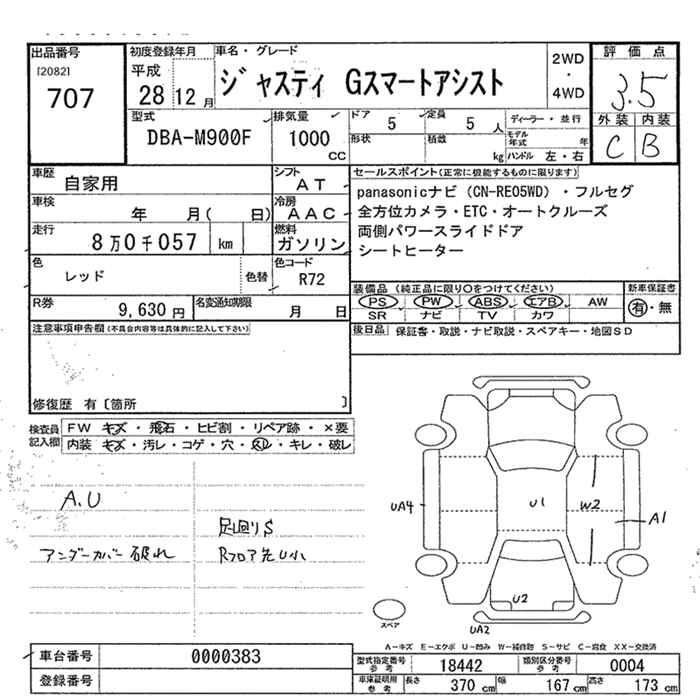 出品番号
[2082]
707
初度登録年月
平成
28 12月
車名・グレード
ジャスティ Gスマートアシスト
2WD
・
4WD
評価点
3.5
外装 内装
C B
型式
DBA-M900F
排気量
1000
CC
ドア
5
定員
5 人
ディーラー・並行
形状
積載
kg
モデル年式 年
ハンドル 左・右
車歴
自家用
シフト
AT
車検
年 月( 日)
冷房
AAC
走行
8万0千057 km
燃料
ガソリン
色
レッド
色替
色コード
R72
R券
9,630 円
名変通知期限
月 日
セールスポイント(正常に機能するものに限ります)
panasonicナビ(CN-RE05WD)・フルセグ
全方位カメラ・ETC・オートクルーズ
両側パワースライドドア
シートヒーター
装備品(純正品に限り○をつけてください)
PS PW ABS エアB AW
SR ナビ TV カワ
新車保証書
有・無
後日品 保証書・取説・ナビ取説・スペアキー・地図SD
注意事項申告欄(不具合内容等は具体的に記入して下さい)
修復歴 有〔箇所 〕
検査員
記入欄
FW キズ・飛石・ヒビ割・リペア跡・×要
内装 キズ・汚レ・コゲ・穴・スレ・キレ・破レ
A.U
アンダーカバー破れ
足廻りS
Rフロア先U小
UA4
U1
W2
A1
U2
UA2
スペア
A-キズ E-エクボ U-凹み W-補修跡 S-サビ C-腐食 XX-交換済
車台番号
0000383
登録番号
型式指定番号
参考
18442
類別区分番号
参考
0004
車庫証明用
参考
長さ 370 cm
幅 167 cm
高さ 173 cm